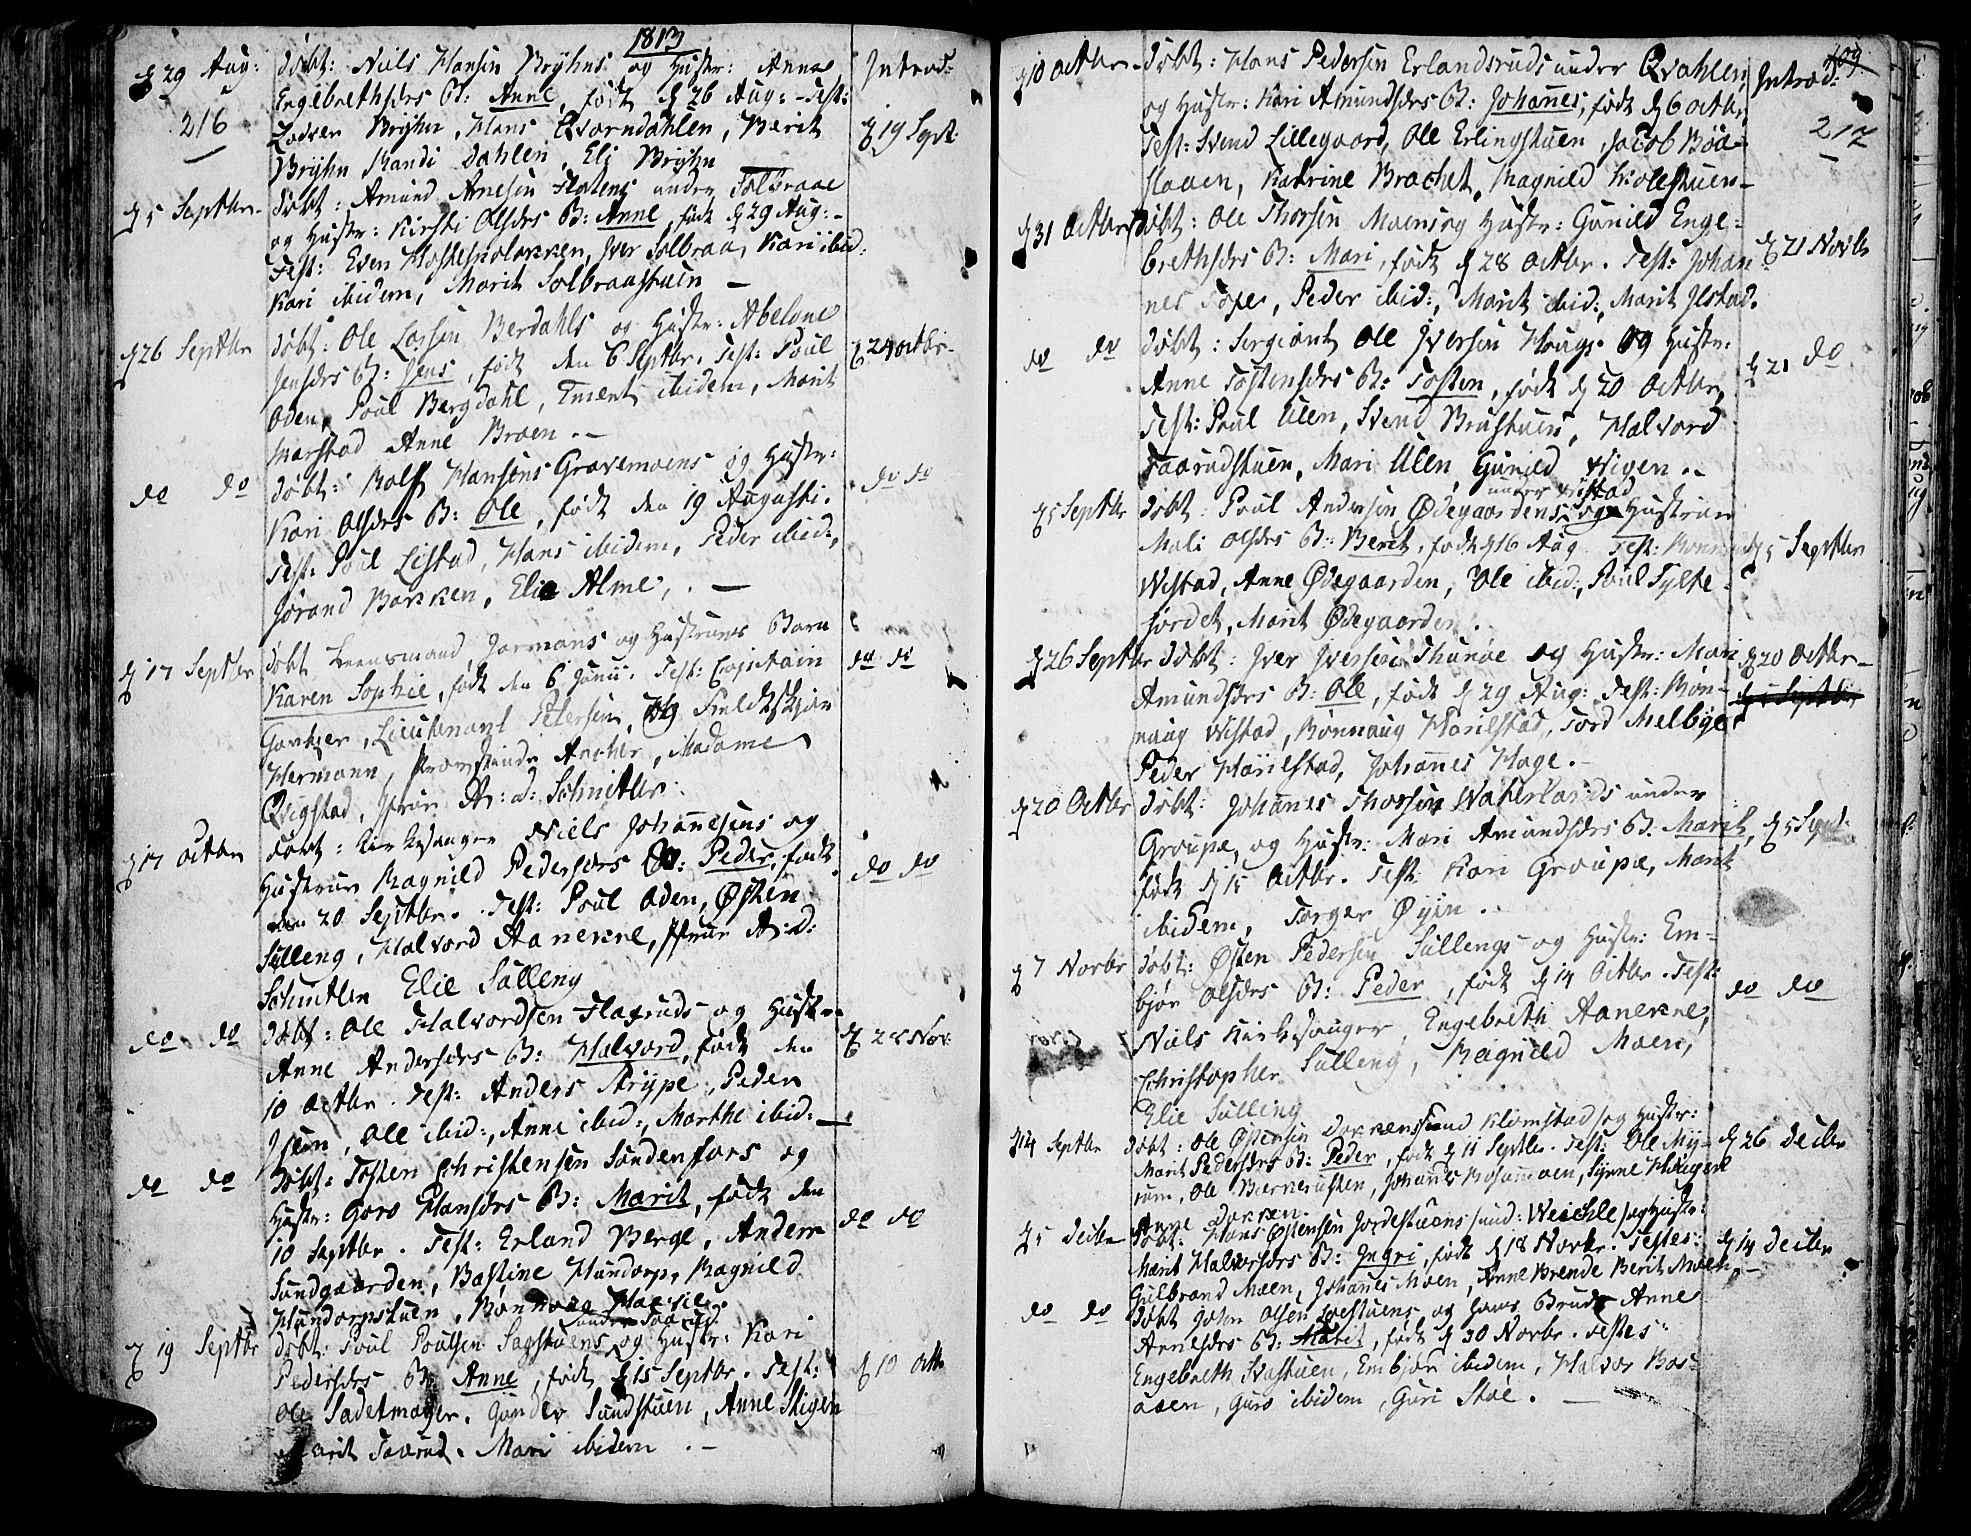 1813
d 29 Aug: döbt: Niels Hansen Bryhns og Hustr: Anne Introd:
Engebrethsdrs B: Anne, födt d 26 Aug: - Test:
216 Brÿhn, Hans Qvarndahlen, Berit d 19 Sept:
Brÿhn Randi Dahlen, Eli Brÿhn
d 5 Septbr döbt: Amund Arnesen Flatens under Solbraae
og Hustr: Kirsti Olsdrs B: Anne, födt d 29 Aug: -
Test: Even, Iver Solbraa, Kari ibid:
Kari ibidem, Marit Solbraastuen -
d 26 Septbr döbt: Ole Larsen Berdahls og Hustr: Abelone
Jensdrs B: Jens, födt den 6 Septbr. Test: Poul d 24 octbr -
Oden, Poul Bergdahl, Ement ibidem, Marit
Marstad Anne Broen. -
do do döbt: Rolf Hansens Gravemoens og Hustr: do do
Kari Olsdrs B: Ole, födt den 19 Augusti.
Test: Poul Listad, Hans ibidem, Peder ibid:,
Jörand Bakken, Elie Alme, . -
d 17 Septbr döbt Leensmand, Jormans og Hustrues Barn
Karen Sophie, födt den 6 Junii. Test: Capitain do do
Lieutenant Petersen, og Feldtskjær
Hermann, Archer, Madame
Qvigstad, Jfrue A: d: Schnitler.
d 17 Octbr döbt: Kirkesanger Niels Johannesens og
Hustrue Ragnild Pedersdrs B: Peder, födt do do
den 20 Septbr. Test: Poul Oden, Østen
Sülleng, Halvord Aanekne, Jfrue A: d:
Schnitler Elie Sülleng
do do döbt: Ole Halvordsen Flaxruds og Hustr:
Anne Andersdrs B: Halvord, födt den d 28 Nov:
10 Octbr. Test: Anders Strÿpe, Peder
Isum, Ole ibid:, Anne ibid:, Marthe ibid: -
do do döbt: Tosten Christensen Söndenfors og
Hustr: Goro Hansdrs B: Marit, födt den
10 Septbr. Test: Erland Berge, Anders do do
Sundgaarden, Bastine Hundorp, Ragnild
Hundorpstuen, Rönnoug
under Taarud
d 19 Septbr döbt: Poul Poulsen Sagstuens og Hustr: Kari
Pedersdrs B: Anne, födt d 15 Septbr. Test: d 10 Octb
Ole Sadelmager, Gunder Sundstuen, Anne Stigen
Marit Taarud, Mari ibidem . -
109
d 10 Octbr - döbt: Hans Pedersen Erlandsruds under Qvahlen, Introd:
og Hustr: Kari Amundsdrs B: Johannes, födt d 6 octbr,
217
Test: Svend Lillegaard, Ole Erlingstuen, Jacob Böe-
slaaen, Katrine Brachet, Ragnild Kiolestuen -
d 31 Octbr döbt: Ole Thorsen Moens og Hustr: Gunild Enge-
brethsdrs B: Mari, födt d 28 Octbr. Test: Johan- d 21 Novbr
nes Tofte, Peder ibid:, Marit ibid:, Marit Ilstad.
do do döbt: Sergiant Ole Iversen Hougs og Hustr: d 21 do
Anne Tostensdrs B: Tosten, födt d 20 Octbr,
Test: Poul Ulen, Svend Brustuen, Halvord
Taarudstuen, Mari Ulen, Gunild Stigen. -
under Wistad
d 5 Septbr döbt: Poul Andersen Ødegaardens og Hustrue
Mali Olsdrs B: Berit, födt d 16 Aug Test: d 5 Septbr
Wistad, Anne Ødegaarden, Ole ibid:, Poul Tylte-
jordet, Marit Ødegaarden.
d 26 Septbr döbt: Iver Iversen Thunöe og Hustr: Mari d 20 Octbr -
Amundsdrs B: Ole, födt d 29 Aug: Test: Rön-
naug Wistad, Rönnaug Harilstad, Tord Melbye
Peder Harilstad, Johannes Hage. -
d 20 Octbr döbt: Johannes Thorsen Waterlands under
Groupe, og Hustr: Mari Amundsdrs B: Marit, d 5 Sept:
födt d 15 Octbr. Test: Kari Groupe, Marit
ibidem, Torger Øyen.
d 7 Novbr döbt: Østen Pedersen Süllengs og Hustr: Em-
björ Olsdrs B: Peder, födt d 14 Octbr. Test: do do
Niels Kirkesanger, Engebreth Aanekne,
Christopher Sülleng, Ragnild Moen,
Elie Sülleng
d 14 Septbr döbt: Ole Østensen Dokkens (und Klomstad) og Hustr:
Marit Pedersdrs B: Peder, födt d 11 Septbr. Test: Ole Mÿ- d 26 Decbr
rum, Ole, Johannes, Synne Haugen
Anne Dokken.
d 5 Decbr döbt: Hans Østensen Jordestuens (und: Weichle) og Hustr:
Marit Halvorsdrs B: Ingri, födt d 18 Novbr. Testes: d 14 Decbr
Gulbrand Moen, Johannes Moen, Anne Brende Berit Moen, -
do do döbt John Olsen og hans Brud Anne
Arnesdrs B: Marit, födt d 30 Novbr. Testes:
Engebreth Svastuen, Embjör ibidem, Halvor Baas-
aaen, Guro ibidem, Guri Stöe. -